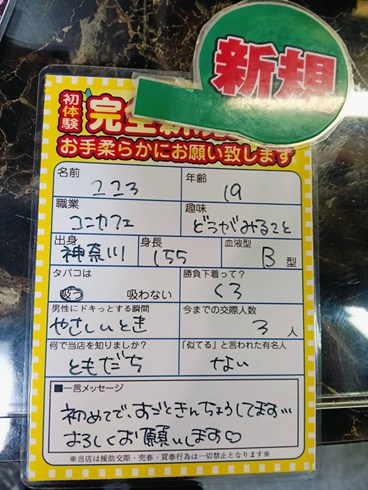 新規
初体験
完全新規
お手柔らかにお願い致します
名前 こころ 年齢 19
職業 コンカフェ 趣味 どうがみること
出身 神奈川 身長 155 血液型 B型
タバコは 吸う 吸わない 勝負下着って? くろ
男性にドキっとする瞬間 やさしいとき 今までの交際人数 3人
何で当店を知りましたか? ともだち 「似てる」と言われた有名人 ない
■一言メッセージ
初めてで、すごときんちょうしてます…
よろしくお願いします♡
※当店は援助交際・売春・買春行為は一切禁止となります※